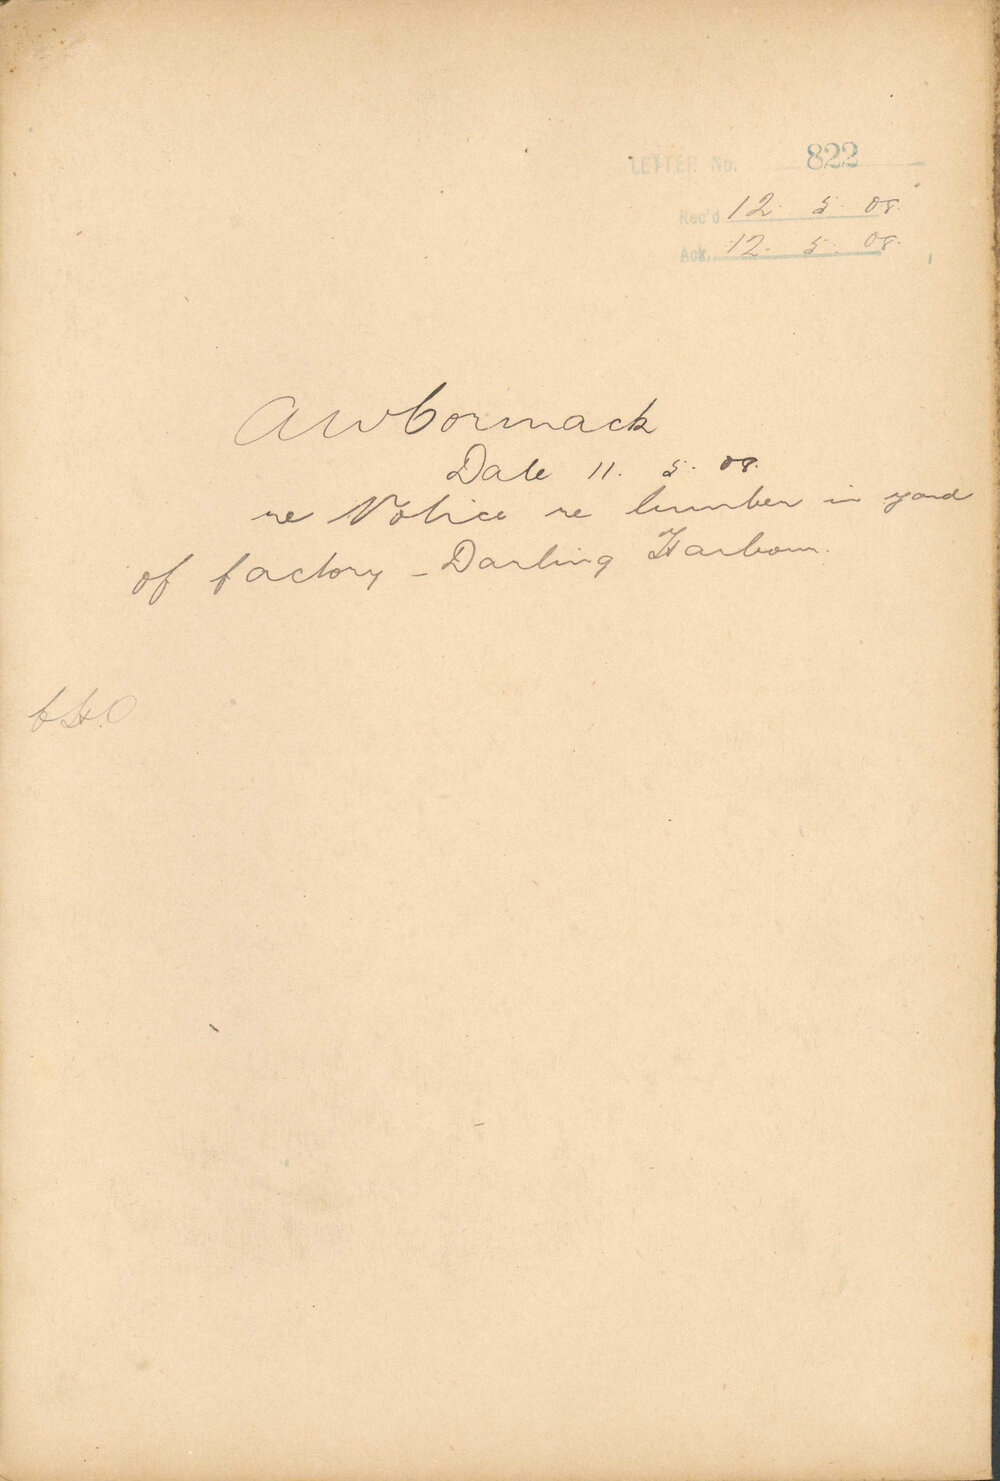 LETTER No. 822
Rec'd 12. 5. 08.
Ack. 12. 5. 08.
A W Cormack
Date 11. 5. 08.
re Notice re lumber in yard
of factory - Darling Harbour.
C.H.O